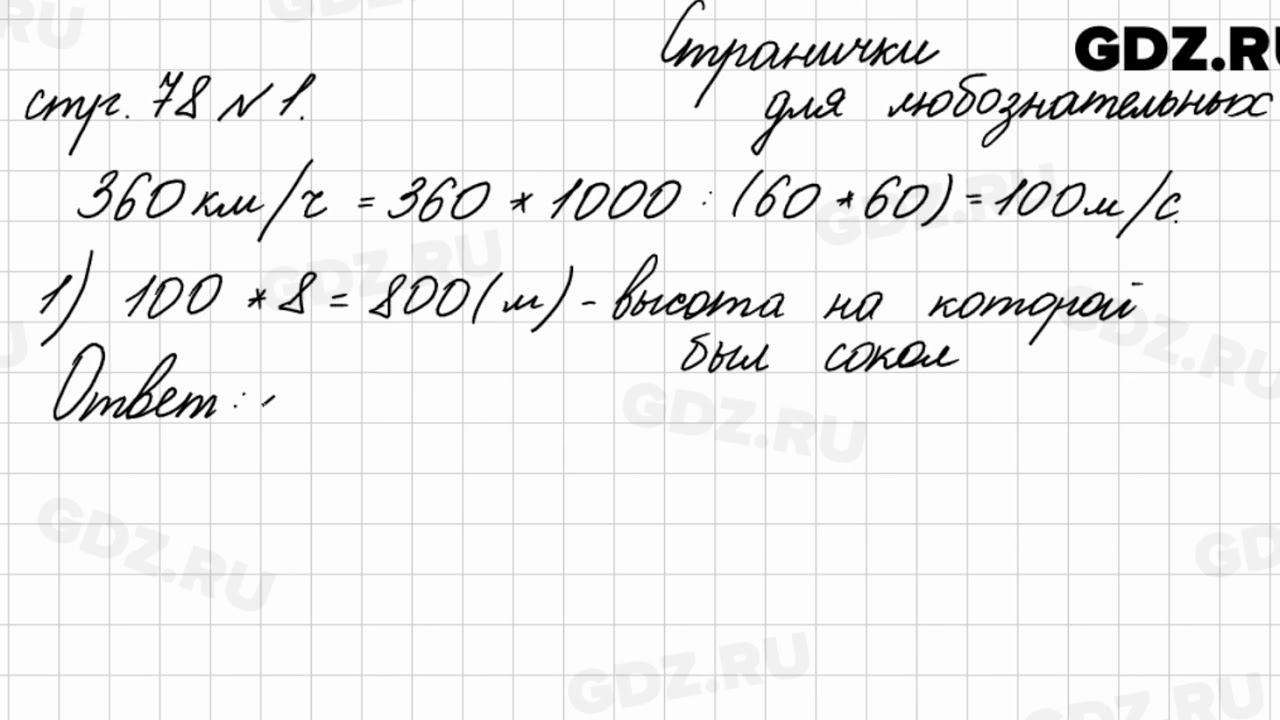 Странички GDZ.RU
стр. 78 № 1. для любознательных
360 км/ч = 360 * 1000 : (60 * 60) = 100 м/с.
1) 100 * 8 = 800 (м) - высота на которой
был сокол
Ответ: